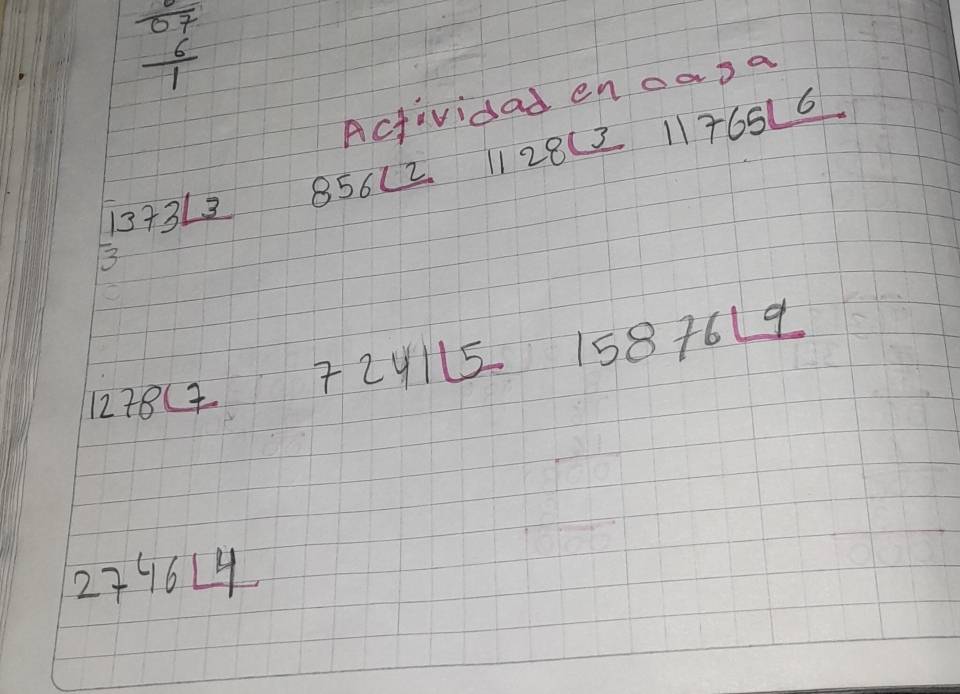 07
6
1
Actividad en casa
1373 3 856 2 1128 3 11765 6
3
1278 7 7241 5 15876 9
2746 4